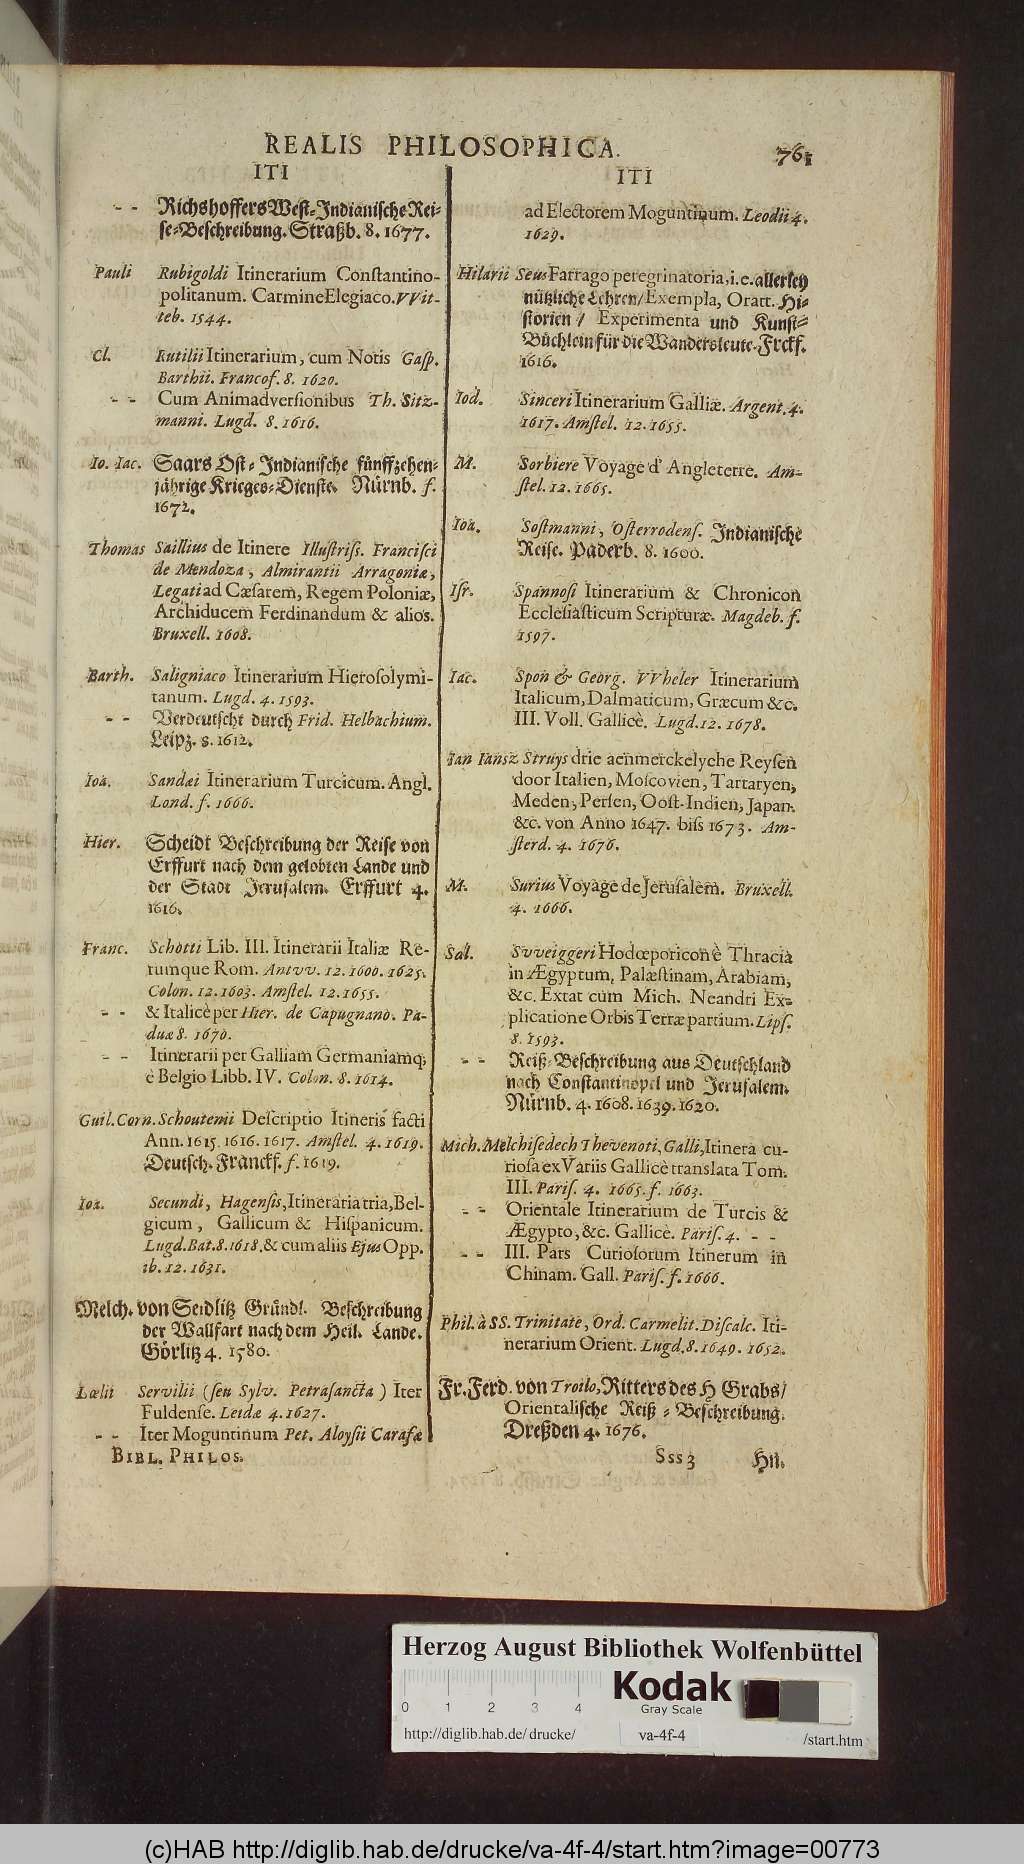 REALIS PHILOSOPHICA. 761
ITI
- - Richshoffers West-Indianische Rei-
se-Beschreibung. Straßb. 8. 1677.
Pauli Rubigoldi Itinerarium Constantino-
politanum. Carmine Elegiaco. VVit-
teb. 1544.
Cl. Rutilii Itinerarium, cum Notis Gasp.
Barthii. Francof. 8. 1620.
- - Cum Animadversionibus Th. Sitz-
manni. Lugd. 8. 1616.
Io. Iac. Saars Ost-Indianische fünffzehen-
jährige Krieges-Dienste. Nürnb. f.
1672.
Thomas Saillius de Itinere Illustriss. Francisci
de Mendoza, Almirantii Arragoniæ,
Legati ad Cæsarem, Regem Poloniæ,
Archiducem Ferdinandum & alios.
Bruxell. 1608.
Barth. Saligniaco Itinerarium Hierosolymi-
tanum. Lugd. 4. 1593.
- - Verdeutscht durch Frid. Helbachium.
Leipz. 8. 1612.
Ioa. Sandæi Itinerarium Turcicum. Angl.
Lond. f. 1666.
Hier. Scheidt Beschreibung der Reise von
Erffurt nach dem gelobten Lande und
der Stadt Jerusalem. Erffurt 4.
1616.
Franc. Schotti Lib. III. Itinerarii Italiæ Re-
rumque Rom. Antvv. 12. 1600. 1625.
Colon. 12. 1603. Amstel. 12. 1655.
- - & Italicè per Hier. de Capugnano. Pa-
duæ 8. 1670.
- - Itinerarii per Galliam Germaniamq;
è Belgio Libb. IV. Colon. 8. 1614.
Guil. Corn. Schoutemii Descriptio Itineris facti
Ann. 1615. 1616. 1617. Amstel. 4. 1619.
Deutsch. Franckf. f. 1619.
Ioa. Secundi, Hagensis, Itineraria tria, Bel-
gicum, Gallicum & Hispanicum.
Lugd. Bat. 8. 1618. & cum aliis Ejus Opp.
ib. 12. 1631.
Melch. von Seidlitz Gründl. Beschreibung
der Wallfart nach dem Heil. Lande.
Görlitz 4. 1580.
Lælii Servilii (seu Sylv. Petrasancta) Iter
Fuldense. Leidæ 4. 1627.
- - Iter Moguntinum Pet. Aloysii Carafæ
BIBL. PHILOS.
ITI
ad Electorem Moguntinum. Leodii 4.
1629.
Hilarii Seus Farrago peregrinatoria, i. e. allerley
nützliche Lehren/ Exempla, Oratt. Hi-
storien/ Experimenta und Kunst-
Büchlein für die Wandersleute. Frckf.
1616.
Iod. Sinceri Itinerarium Galliæ. Argent. 4.
1617. Amstel. 12. 1655.
M. Sorbiere Voyage d' Angleterre. Am-
stel. 12. 1665.
Ioa. Sostmanni, Osterrodens. Indianische
Reise. Paderb. 8. 1600.
Isr. Spannosi Itinerarium & Chronicon
Ecclesiasticum Scripturæ. Magdeb. f.
1597.
Iac. Spon & Georg. VVheler Itinerarium
Italicum, Dalmaticum, Græcum &c.
III. Voll. Gallicè. Lugd. 12. 1678.
Ian Iansz Struys drie aenmerckelyche Reysen
door Italien, Moscovien, Tartaryen,
Meden, Persen, Oost-Indien, Japan.
&c. von Anno 1647. biss 1673. Am-
sterd. 4. 1676.
M. Surius Voyage de Jerusalem. Bruxell.
4. 1666.
Sal. Svveiggeri Hodœporicon è Thracia
in Ægyptum, Palæstinam, Arabiam,
&c. Extat cum Mich. Neandri Ex-
plicatione Orbis Terræ partium. Lips.
8. 1593.
- - Reiß-Beschreibung aus Deutschland
nach Constantinopel und Jerusalem.
Nürnb. 4. 1608. 1639. 1620.
Mich. Melchisedech Thevenoti, Galli, Itinera cu-
riosa ex Variis Gallicè translata Tom.
III. Paris. 4. 1665. f. 1663.
- - Orientale Itinerarium de Turcis &
Ægypto, &c. Gallicè. Paris. 4. - -
- - III. Pars Curiosorum Itinerum in
Chinam. Gall. Paris. f. 1666.
Phil. à SS. Trinitate, Ord. Carmelit. Discalc. Iti-
nerarium Orient. Lugd. 8. 1649. 1652.
Fr. Ferd. von Troilo, Ritters des H Grabs/
Orientalische Reiß-Beschreibung.
Dreßden 4. 1676.
Sss 3 Hn.
Herzog August Bibliothek Wolfenbüttel
0 1 2 3 4
Kodak
Gray Scale
http://diglib.hab.de/drucke/ va-4f-4 /start.htm
(c)HAB http://diglib.hab.de/drucke/va-4f-4/start.htm?image=00773